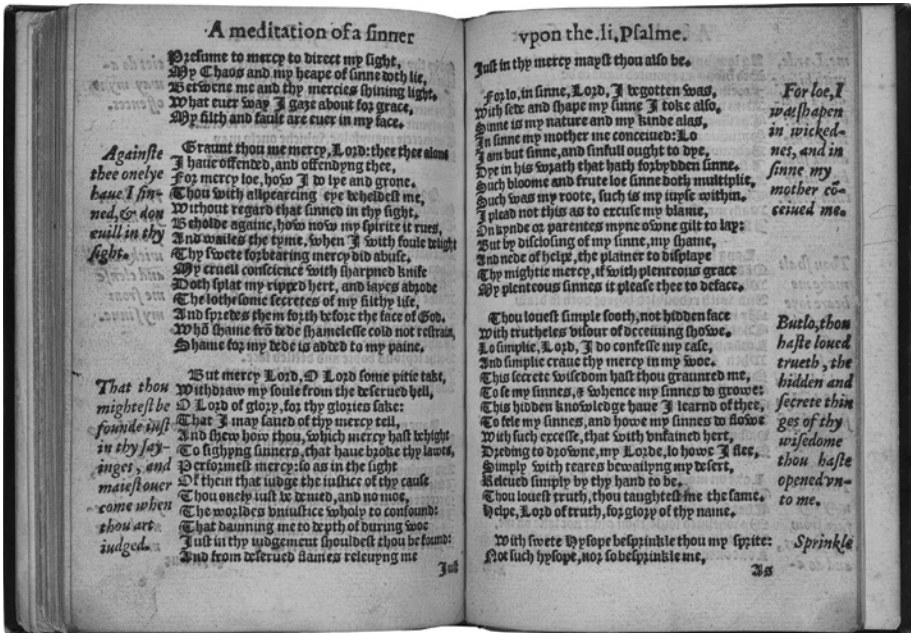 A meditation of a sinner
Presume to mercy to direct my sight,
My Chaos and my heape of sinne doth lie,
Betwene me and thy mercies shining light.
What euer way I gaze about for grace,
My filth and fault are euer in my face.
Againste
thee onelye
haue I sin-
ned, & don
euill in thy
sight.
Graunt thou me mercy, Lord: thee thee alone
I haue offended, and offendyng thee,
For mercy loe, how I do lye and grone.
Thou with allpearcing eye beheldest me,
Without regard that sinned in thy sight.
Beholde againe, how now my spirite it rues,
And wailes the tyme, when I with foule delight
Thy swete forbearing mercy did abuse.
My cruell conscience with sharpned knife
Doth splat my ripped hert, and layes abrode
The lothesome secretes of my filthy life,
And spredes them forth before the face of God.
Whō shame frō dede shamelesse cold not restrain,
Shame for my dede is added to my paine.
That thou
mightest be
founde iust
in thy say-
inges, and
maiest ouer
come when
thou art
iudged.
But mercy Lord, O Lord some pitie take,
Withdraw my soule from the deserued hell,
O Lord of glory, for thy glories sake:
That I may saued of thy mercy tell,
And shew how thou, which mercy hast behight
To sighyng sinners, that haue broke thy lawes,
Performest mercy: so as in the sight
Of them that iudge the iustice of thy cause
Thou onely iust be demed, and no moe,
The worldes vniustice wholy to confound:
That damning me to depth of during woe
Just in thy iudgement shouldest thou be found:
And from deserued flames releuyng me
Just
vpon the.li.Psalme.
Just in thy mercy mayst thou also be.
For loe, I
was shapen
in wicked-
nes, and in
sinne my
mother cō-
ceiued me.
For lo, in sinne, Lord, I begotten was,
With sede and shape my sinne I toke also,
Sinne is my nature and my kinde alas,
In sinne my mother me conceiued: Lo
I am but sinne, and sinfull ought to dye,
Dye in his wrath that hath forbydden sinne.
Such bloome and frute loe sinne doth multiplie,
Such was my roote, such is my iuyse within.
I plead not this as to excuse my blame,
On kynde or parentes myne owne gilt to lay:
But by disclosing of my sinne, my shame,
And nede of helpe, the plainer to displaye
Thy mightie mercy, if with plenteous grace
My plenteous sinnes it please thee to deface.
But lo, thou
haste loued
trueth, the
hidden and
secrete thin
ges of thy
wisedome
thou haste
opened vn-
to me.
Thou louest simple sooth, not hidden face
With trutheles visour of deceiuing showe.
Lo simplie, Lord, I do confesse my case,
And simplie craue thy mercy in my woe.
This secrete wisedom hast thou graunted me,
To se my sinnes, & whence my sinnes do growe:
This hidden knowledge haue I learnd of thee,
To fele my sinnes, and howe my sinnes do flowe
With such excesse, that with vnfained hert,
Dreding to drowne, my Lorde, lo howe I flee,
Simply with teares bewailyng my desert,
Releued simply by thy hand to be.
Thou louest truth, thou taughtest me the same.
Helpe, Lord of truth, for glory of thy name.
Sprinkle
With swete Hysope besprinkle thou my sprite:
Not such hysope, nor so besprinkle me,
As